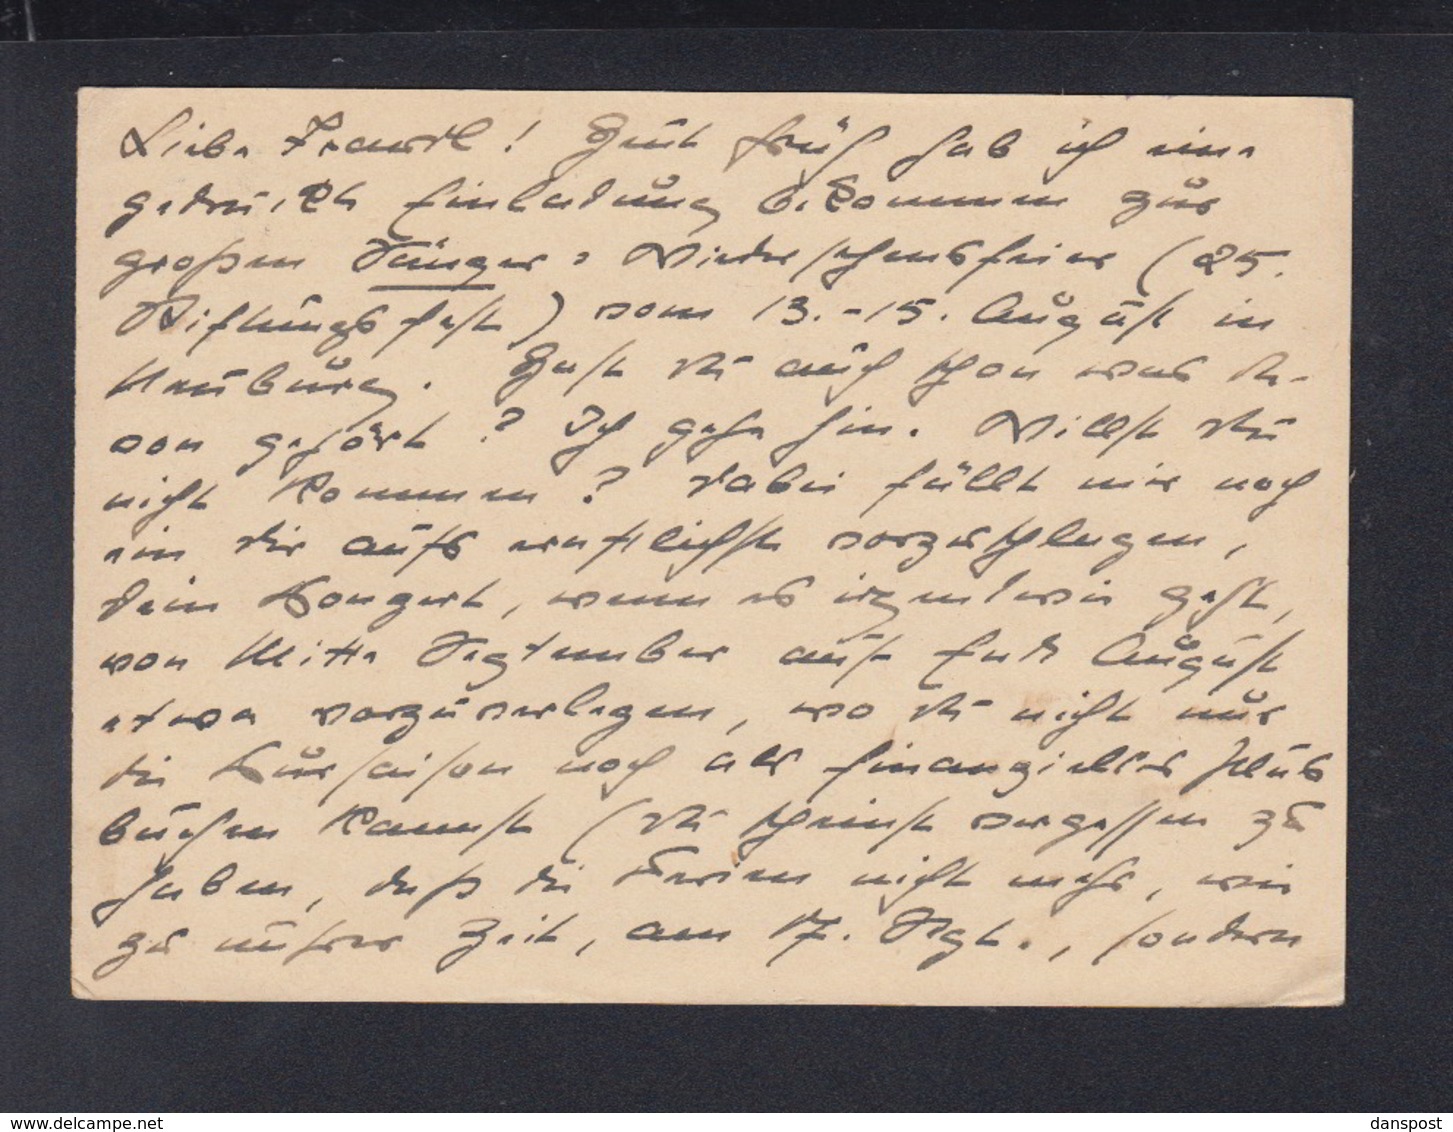 Liebe Trautl! Heut früh hab ich eine
gedruckte Einladung bekommen zur
großen Sänger-Wiedersehensfeier (25.
Stiftungsfest) vom 13.-15. August in
Neuburg. Hast du auch schon was da-
von gehört? Ich gehe hin. Willst du
nicht kommen? Dabei fällt mir noch
ein dir aufs ernstlichste vorzuschlagen,
dein Konzert, wenn es irgendwie geht,
von Mitte September auf Ende August
etwa vorzuverlegen, wo du nicht nur
die Kursaison noch als finanzielles Plus
buchen kannst (du scheinst vergessen zu
haben, daß die Ferien nicht mehr, wie
zu unsrer Zeit, am 17. Sept., sondern
danspost